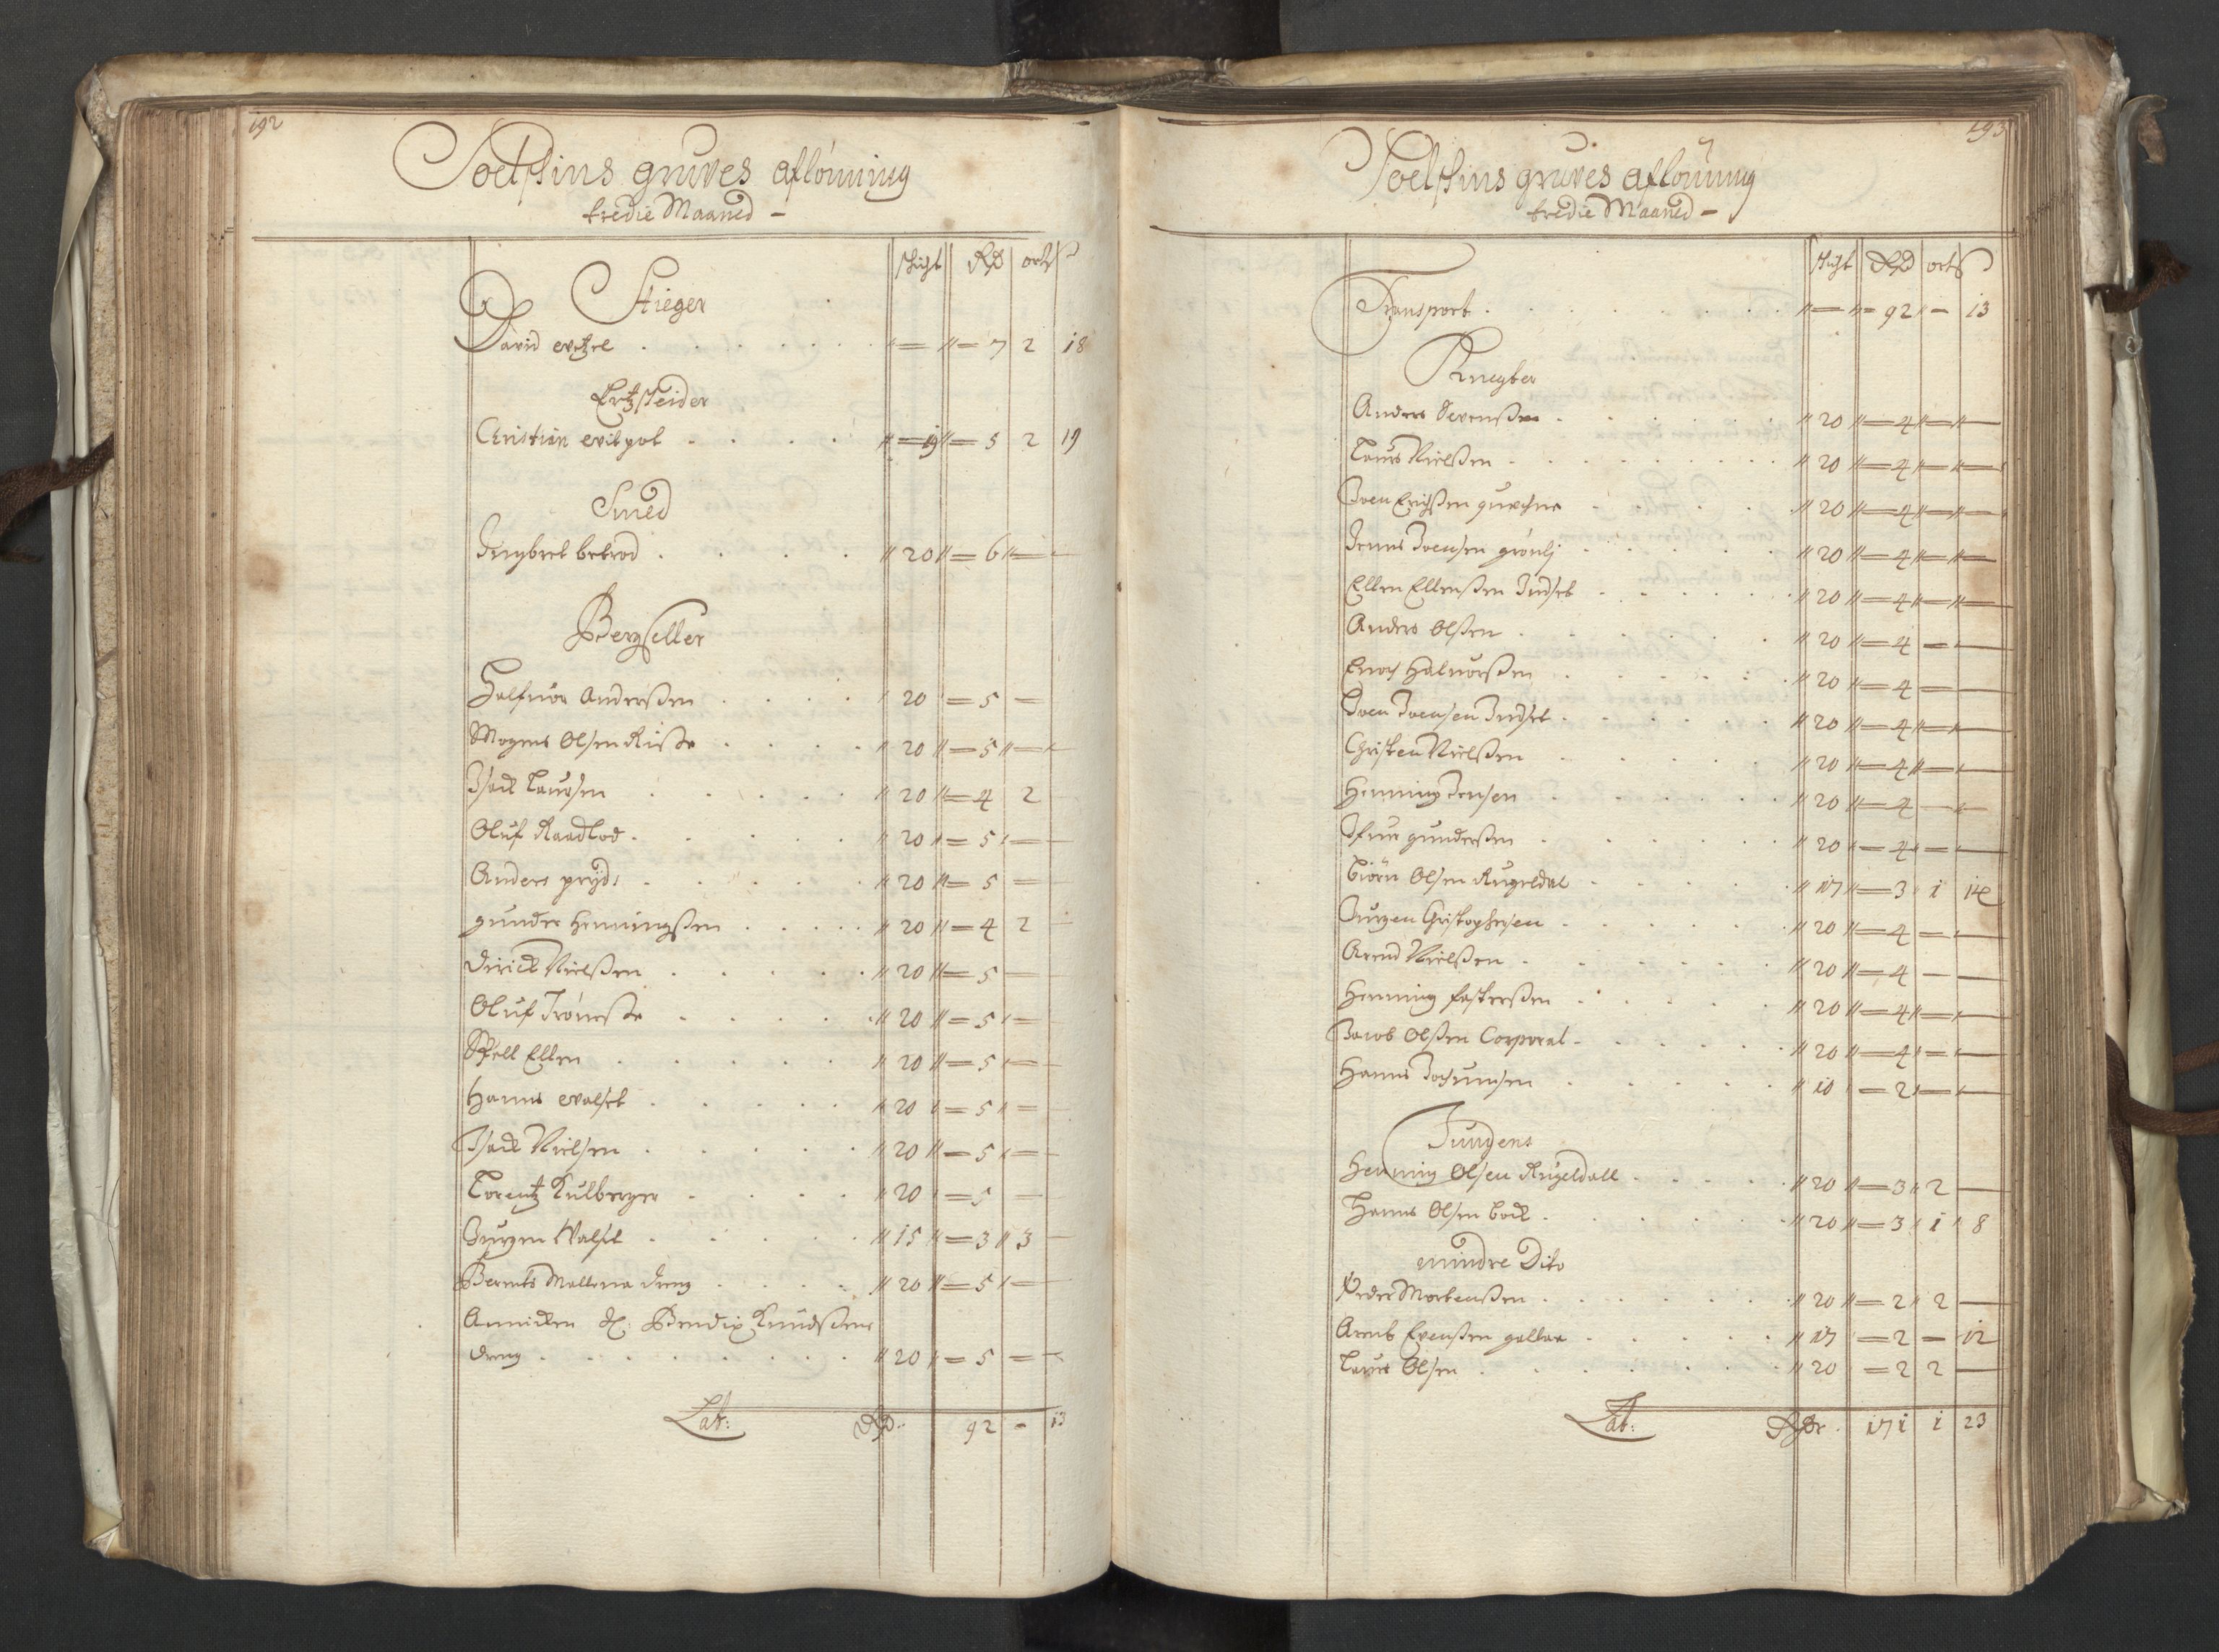 192
Soelskins gruves aflønning
tredie Maaned -
schicht Rd ort s
Stieger
David  " — " = 7 2 18
Ertzscheider
Christian  " = 19 " = 5 2 19
Smed
Ingbret betrod " 20 " = 6 " —
Bergseller
Halfuor Anderssen " 20 = 5 —
Mogens Olsen Riisse " 20 " = 5 " —
Isack Laursen " 20 " = 4 2
Oluf Raadlod " 20 " = 5 " —
Anders pryds " 20 " = 5 —
gunder Henningssen " 20 " = 4 2
Dirick Nielssen " 20 " = 5 —
Oluf Trønesse " 20 " = 5 " —
Kiell Ellen " 20 " = 5 " —
Hanns walset " 20 " = 5 " —
Isack Nielsen " 20 " = 5 " —
Lorentz Kulberger " 20 " = 5 —
Jurgen Walset " 15 " = 3 " 3
Berents Mollena dreng " 20 " = 5 " —
Annicken Bendix Knudssens
dreng " 20 " = 5 — "
Lat: Rd 92 - 13
193
Soelskins gruves aflønning
tredie Maaned -
schicht Rd ort s
Transport " — " = 92 " — 13
Knegter
Anders Sevenssen " 20 " = 4 " — " —
Laurs Nielssen " 20 " = 4 " — " —
Iven Erichssen " 20 " = 4 " — " —
Jenns Ivensen grønlj " 20 " = 4 " — " —
Ellen Ellenssen Indset " 20 " = 4 " — " —
Anders Olssen " 20 " = 4 — —
Enoch Haluorssen " 20 " = 4 — —
Iven Ivensen Indset " 20 " = 4 " — —
Christen Nielssen " 20 " = 4 " — —
Henning Jensen " 20 " = 4 — "
Ifuer gunderssen " 20 " = 4 " — —
Biørn Olsen Rugeldal " 17 " = 3 " 1 14
Jurgen Christophersen " 20 " = 4 — —
Arend Nielssen " 20 " = 4 — —
Henning Esskerssen " 20 " = 4 " — —
Jacob Olssen Corporal " 20 " = 4 " — —
Hanns Jochumsen " 10 = 2 " — —
Jungens
Henning Olsen Rugeldall " 20 " = 3 " 2 —
Hanns Olsen bock " 20 " = 3 " 1 " 8
mindre Dito
Peder Mortenssen " 20 " = 2 " 2 —
Arent Evenssen galtar " 17 = 2 — 12
Laurs Olsen " 20 = 2 2 —
Lat: Rdr 171 1 23